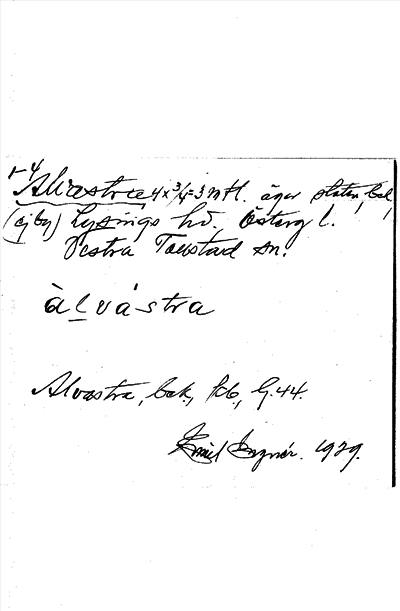 1-4 Alvastra 4 x 3/4 = 3 mtl. äger staten, bal,
(ej by) Lysings hd. Österg l.
Västra Tollstad sn.
àlvástra
Alvastra, bak., Jcb., G. 44.
Emil 1929.